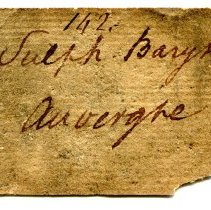 142.
Sulph. Baryt
Auvergne